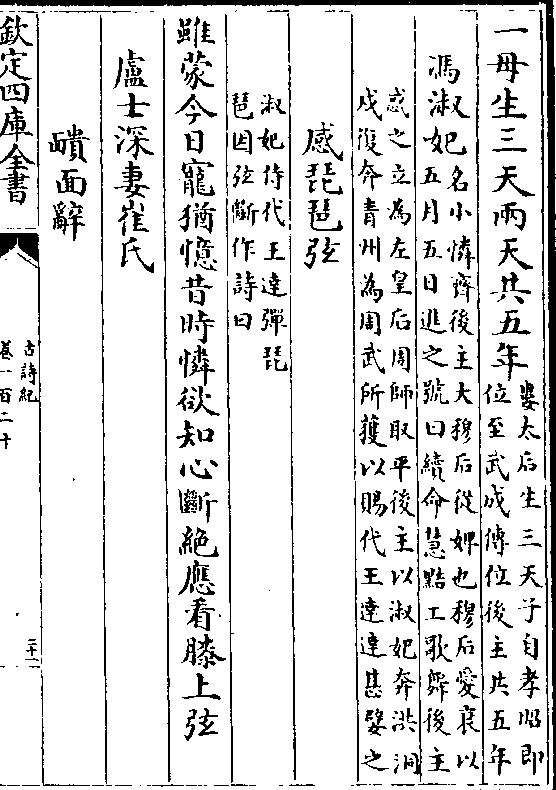 一母生三天兩天共五年婁太后生三天子自孝昭即
位至武成傳位後主共五年
馮淑妃名小憐齊後主大穆后從婢也穆后愛衰以
五月五日進之號曰續命慧黠工歌舞後主
惑之立為左皇后周師取平後主以淑妃奔洪洞
戍復奔青州為周武所獲以賜代王達達甚嬖之
感琵琶弦
淑妃侍代王達彈琵
琶因弦斷作詩曰
雖蒙今日寵猶憶昔時憐欲知心斷絶應看膝上弦
盧士深妻崔氏
靧面辭
欽定四庫全書
古詩紀
卷一百二十
二十二